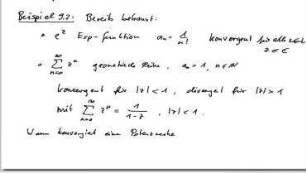 Beispiel 9.2: Bereits bekannt:
• e^z Exp-funktion a_n = 1/n! konvergent für alle z ∈ ℂ
• ∑_{n=0}^∞ z^n geometrische Reihe, a_n = 1, n ∈ ℕ
konvergent für |z| < 1, divergent für |z| > 1
mit ∑_{n=0}^∞ z^n = 1/(1-z), |z| < 1.
Wann konvergiert eine Potenzreihe